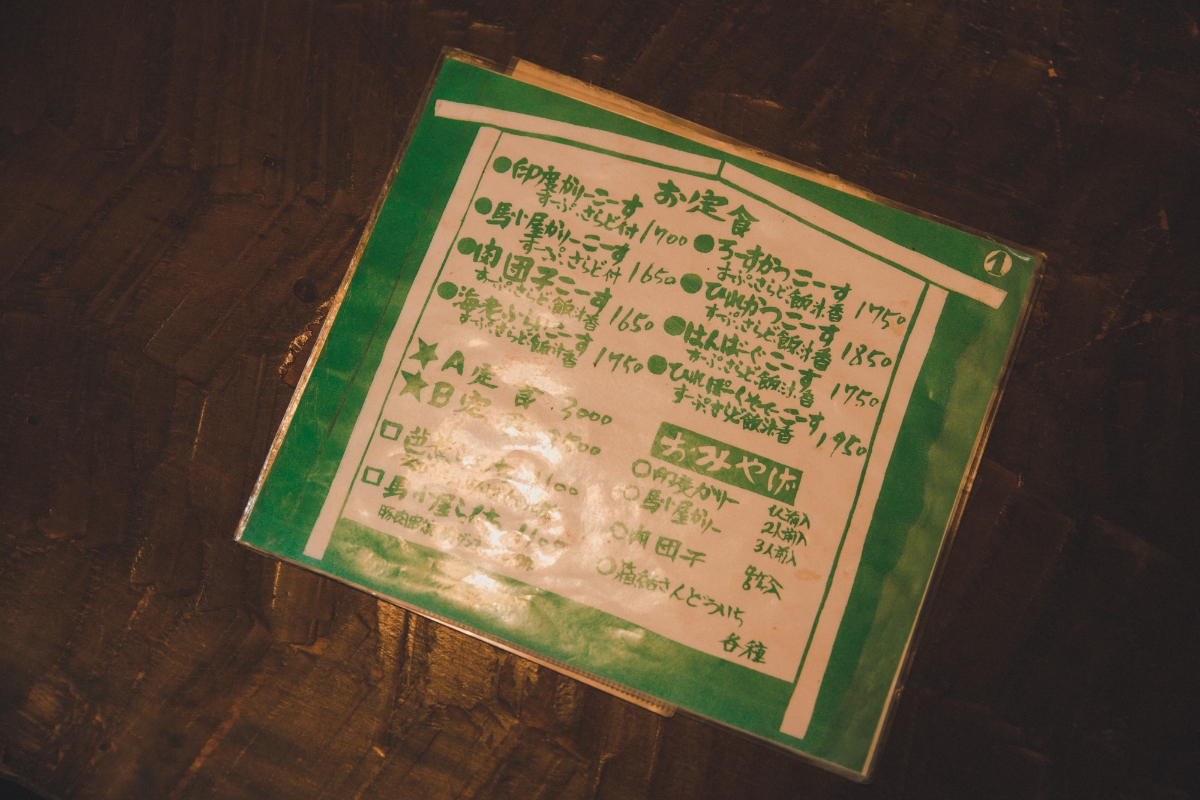 お定食
①
●印度かりーこーす
すーぷ・さらど付 1700
●馬小屋かりーこーす
すーぷ・さらど付 1650
●肉団子こーす
すーぷ・さらど飯汁香 1650
●海老ふらいこーす
すーぷ・さらど飯汁香 1750
★A定食 3000
★B定食
□
□馬小屋
●ろーすかつこーす
すーぷ・さらど飯汁香 1750
●ひれかつこーす
すーぷ・さらど飯汁香 1850
●はんばーぐこーす
すーぷ・さらど飯汁香 1750
●ひれぽーくそてーこーす
すーぷ・さらど飯汁香 1950
おみやげ
○印度カリー 1人前入
○馬小屋カリー 2人前入
3人前入
○肉団子
○箱詰さんどうぃち
各種